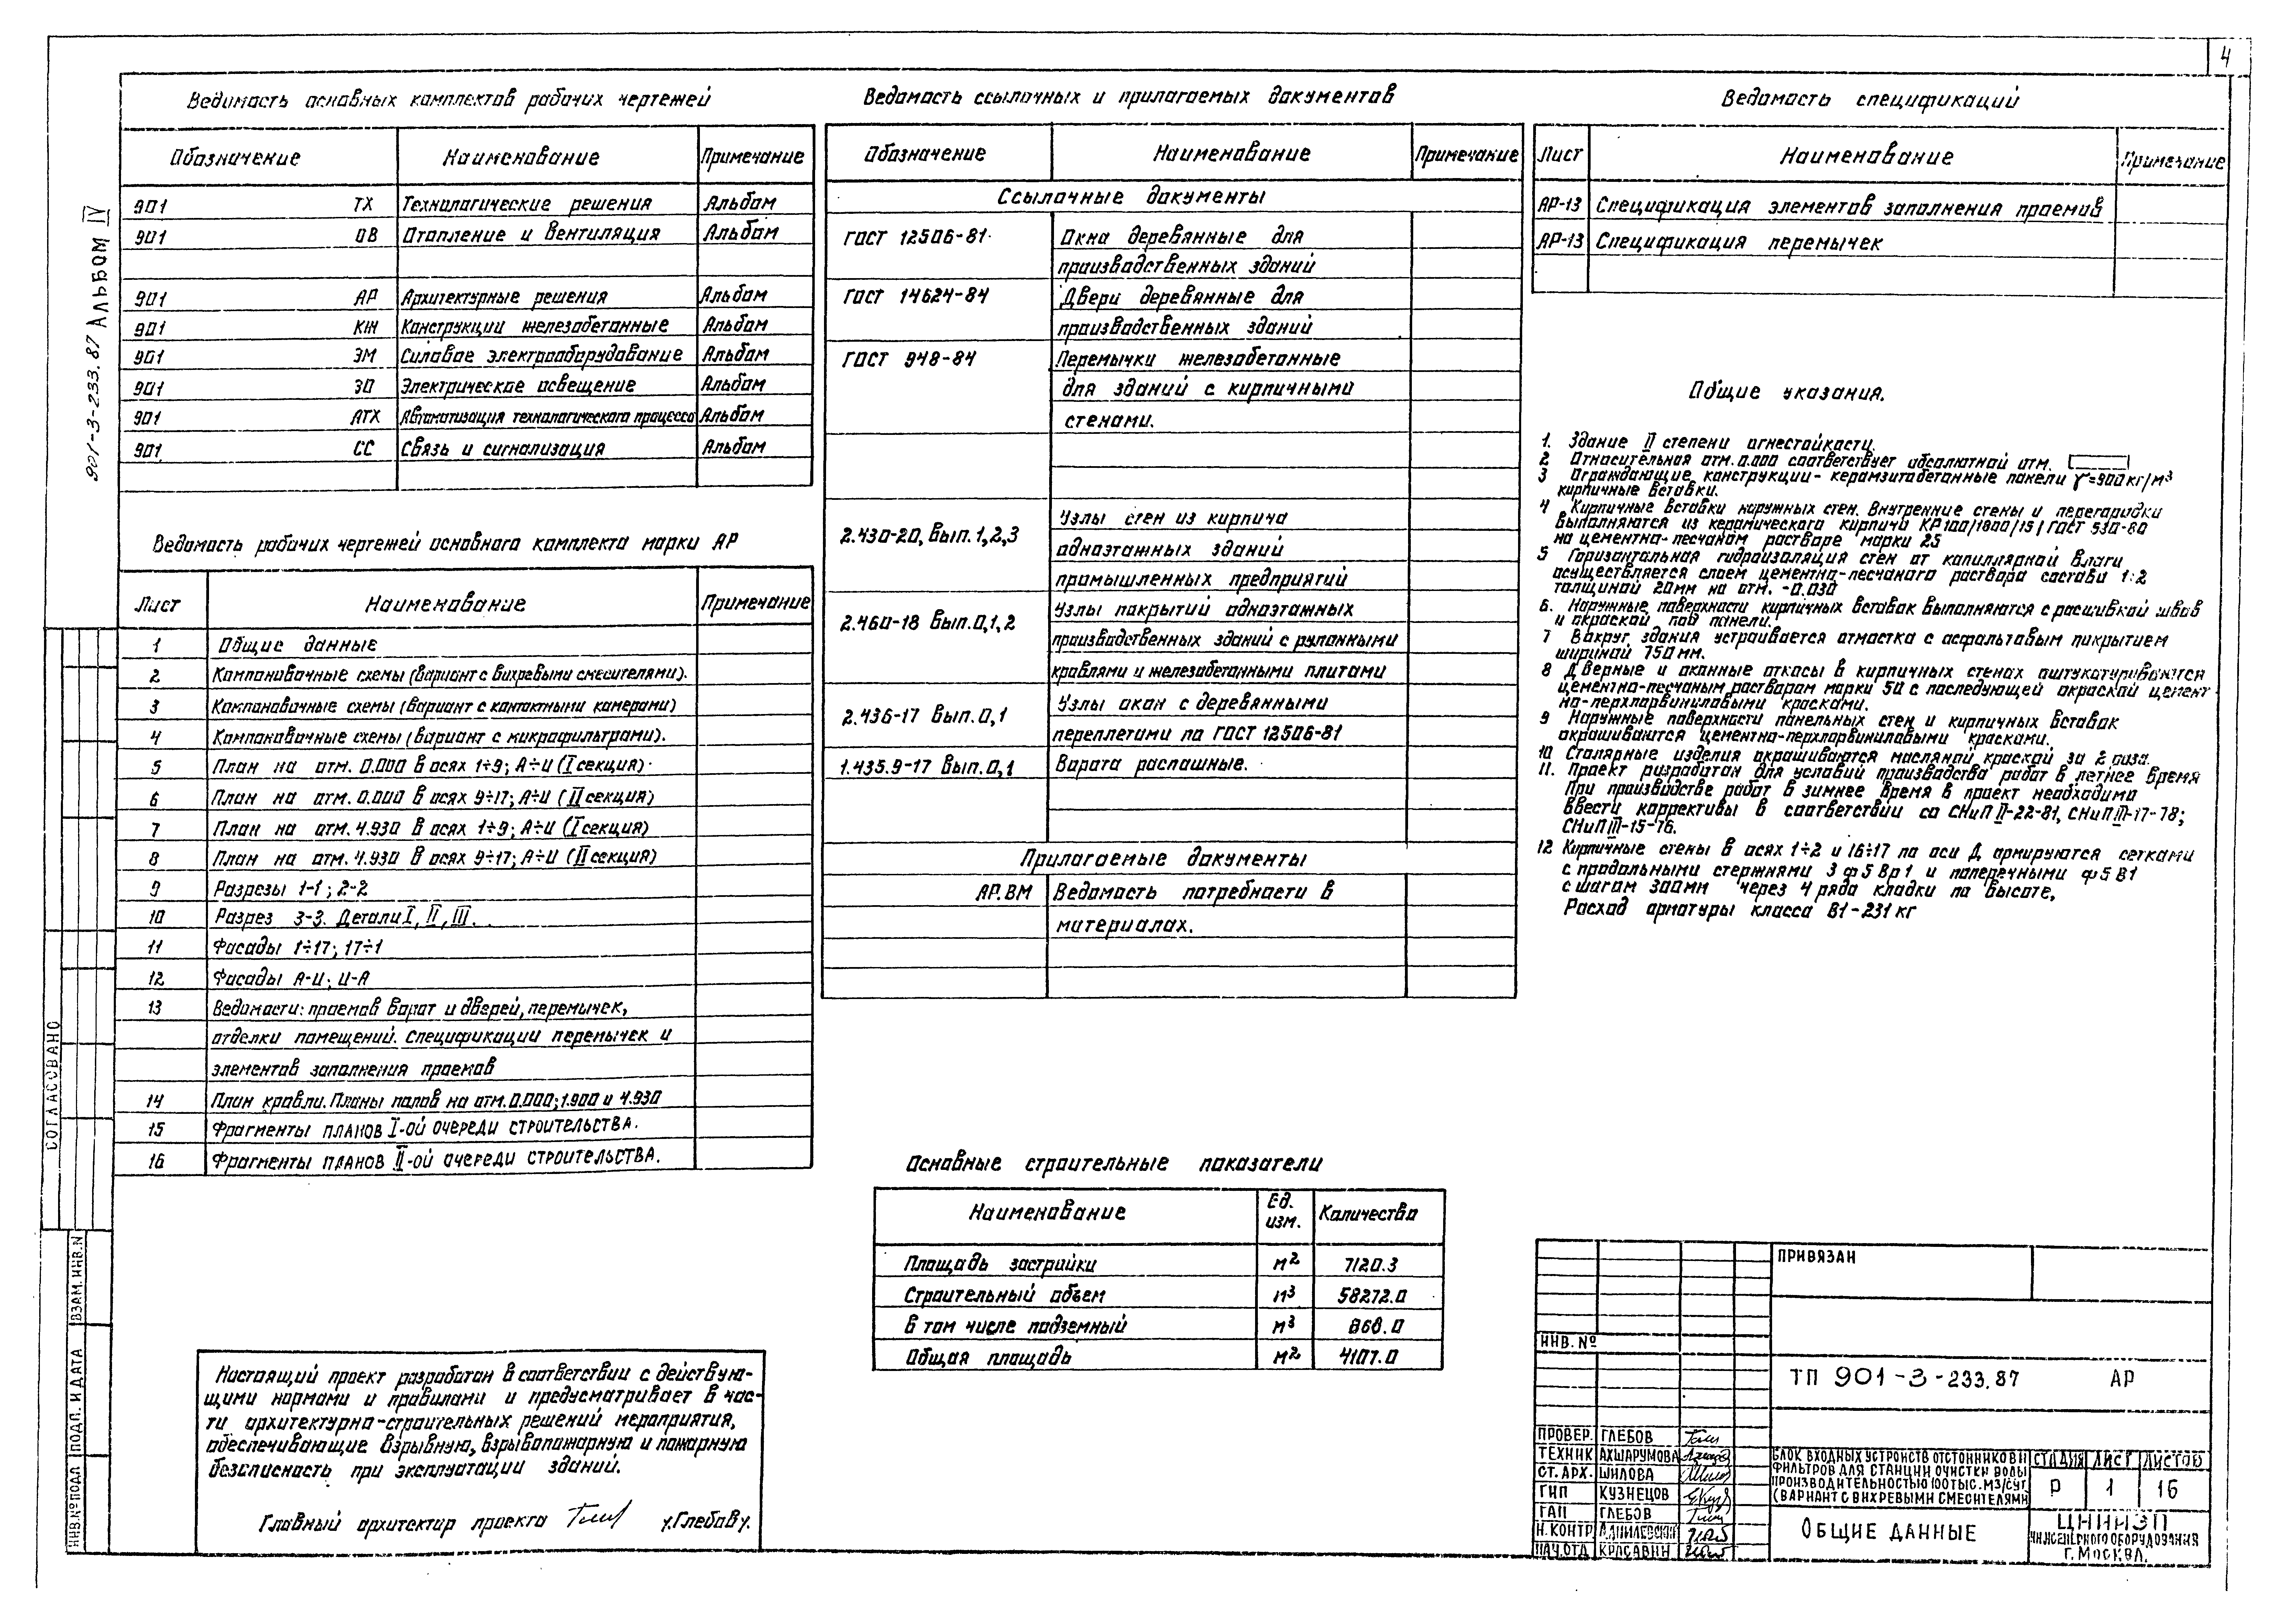 4
Ведомость основных комплектов рабочих чертежей
Обозначение Наименование Примечание
901 ТХ Технологические решения Альбом
901 ОВ Отопление и вентиляция Альбом
901 АР Архитектурные решения Альбом
901 КЖ Конструкции железобетонные Альбом
901 ЭМ Силовое электрооборудование Альбом
901 ЭО Электрическое освещение Альбом
901 АТХ Автоматизация технологического процесса Альбом
901 СС Связь и сигнализация Альбом
901-3-233.87 АЛЬБОМ IV
Ведомость рабочих чертежей основного комплекта марки АР
Лист Наименование Примечание
1 Общие данные
2 Компоновочные схемы (вариант с вихревыми смесителями).
3 Компоновочные схемы (вариант с контактными камерами)
4 Компоновочные схемы (вариант с микрофильтрами).
5 План на отм. 0.000 в осях 1÷9; А÷И (I секция)
6 План на отм. 0.000 в осях 9÷17; А÷И (II секция)
7 План на отм. 4.930 в осях 1÷9; А÷И (I секция)
8 План на отм. 4.930 в осях 9÷17; А÷И (II секция)
9 Разрезы 1-1; 2-2
10 Разрез 3-3. Детали I, II, III.
11 Фасады 1÷17; 17÷1
12 Фасады А-И; И-А
13 Ведомости: проемов ворот и дверей, перемычек,
отделки помещений. Спецификации перемычек и
элементов заполнения проемов
14 План кровли. Планы полов на отм. 0.000; 1.900 и 4.930
15 Фрагменты планов I-ой очереди строительства.
16 Фрагменты планов II-ой очереди строительства.
Настоящий проект разработан в соответствии с действую-
щими нормами и правилами и предусматривает в час-
ти архитектурно-строительных решений мероприятия,
обеспечивающие взрывную, взрывопожарную и пожарную
безопасность при эксплуатации зданий.
Главный архитектор проекта /Глебов/.
Ведомость ссылочных и прилагаемых документов
Обозначение Наименование Примечание
Ссылочные документы
ГОСТ 12506-81 Окна деревянные для
производственных зданий
ГОСТ 14624-84 Двери деревянные для
производственных зданий
ГОСТ 948-84 Перемычки железобетонные
для зданий с кирпичными
стенами.
2.430-20, Вып. 1,2,3 Узлы стен из кирпича
одноэтажных зданий
промышленных предприятий
2.460-18 Вып. 0,1,2 Узлы покрытий одноэтажных
производственных зданий с рулонными
кровлями и железобетонными плитами
2.436-17 Вып. 0,1 Узлы окон с деревянными
переплетами по ГОСТ 12506-81
1.435.9-17 Вып. 0,1 Ворота распашные.
Прилагаемые документы
АР.ВМ Ведомость потребности в
материалах.
Основные строительные показатели
Наименование Ед. изм. Количество
Площадь застройки м² 7120.3
Строительный объем м³ 58272.0
в том числе подземный м³
Общая площадь м² 4107.0
Ведомость спецификаций
Лист Наименование Примечание
АР-13 Спецификация элементов заполнения проемов
АР-13 Спецификация перемычек
Общие указания.
1. Здание II степени огнестойкости.
2 Относительная отм. 0.000 соответствует абсолютной отм.
3 Ограждающие конструкции - керамзитобетонные панели γ=900кг/м³
кирпичные вставки.
4 Кирпичные вставки наружных стен. Внутренние стены и перегородки
выполняются из керамического кирпича КР 100/1800/15/ ГОСТ 530-80
на цементно-песчаном растворе марки 25
5 Горизонтальная гидроизоляция стен от капиллярной влаги
осуществляется слоем цементно-песчаного раствора состава 1:2
толщиной 20мм на отм. -0.030
6. Наружные поверхности кирпичных вставок выполняются с расшивкой швов
и окраской под панели.
7 Вокруг здания устраивается отмостка с асфальтовым покрытием
шириной 750 мм.
8 Дверные и оконные откосы в кирпичных стенах оштукатуриваются
цементно-песчаным раствором марки 50 с последующей окраской цемент
но-перхлорвиниловыми красками.
9 Наружные поверхности панельных стен и кирпичных вставок
окрашиваются цементно-перхлорвиниловыми красками.
10 Столярные изделия окрашиваются масляной краской за 2 раза.
11. Проект разработан для условий производства работ в летнее время
При производстве работ в зимнее время в проект необходимо
ввести коррективы в соответствии со СНиП II-22-81, СНиП III-17-78;
СНиП III-15-76.
12 Кирпичные стены в осях 1÷2 и 16÷17 по оси Д армируются сетками
с продольными стержнями 3 ф 5 Вр 1 и поперечными ф 5 В1
с шагом 300мм через 4 ряда кладки по высоте.
Расход арматуры класса В1 - 231 кг
ПРИВЯЗАН
ИНВ. №
ТП 901-3-233.87 АР
ПРОВЕР. ГЛЕБОВ
ТЕХНИК АХШАРУМОВА
СТ. АРХ. ШИЛОВА
ГИП КУЗНЕЦОВ
ГАП ГЛЕБОВ
Н.КОНТР.
НАЧ.ОТД КРАСАВИН
БЛОК ВХОДНЫХ УСТРОЙСТВ ОТСТОЙНИКОВ И
ФИЛЬТРОВ ДЛЯ СТАНЦИИ ОЧИСТКИ ВОДЫ
ПРОИЗВОДИТЕЛЬНОСТЬЮ 100 ТЫС. М3/СУТ.
(ВАРИАНТ С ВИХРЕВЫМИ СМЕСИТЕЛЯМИ
СТАДИЯ ЛИСТ ЛИСТОВ
Р 1 16
ОБЩИЕ ДАННЫЕ
ЦНИИЭП
ИНЖЕНЕРНОГО ОБОРУДОВАНИЯ
Г. МОСКВА.
СОГЛАСОВАНО
ВЗАМ. ИНВ. N
ПОДП. И ДАТА
ИНВ. № ПОДЛ